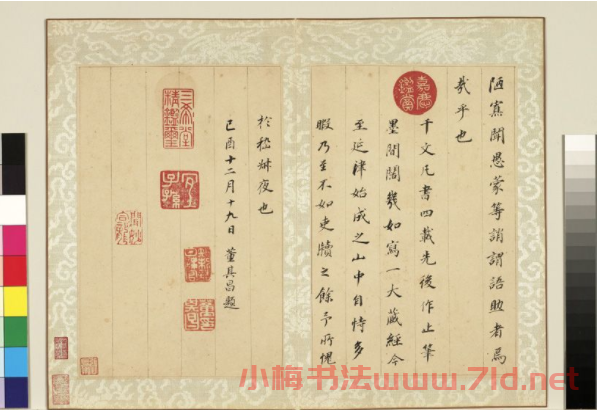 陋寡聞愚蒙等誚謂語助者焉
哉乎也
千文凡書四載先後作止筆
墨間闊幾如寫一大藏經今
至延津始成之山中自恃多
暇乃至不如吏牘之餘予所愧
於嵇叔夜也
己酉十二月十九日 董其昌題
三希堂精鑑璽
宜子孫
小梅书法www.7ld.net